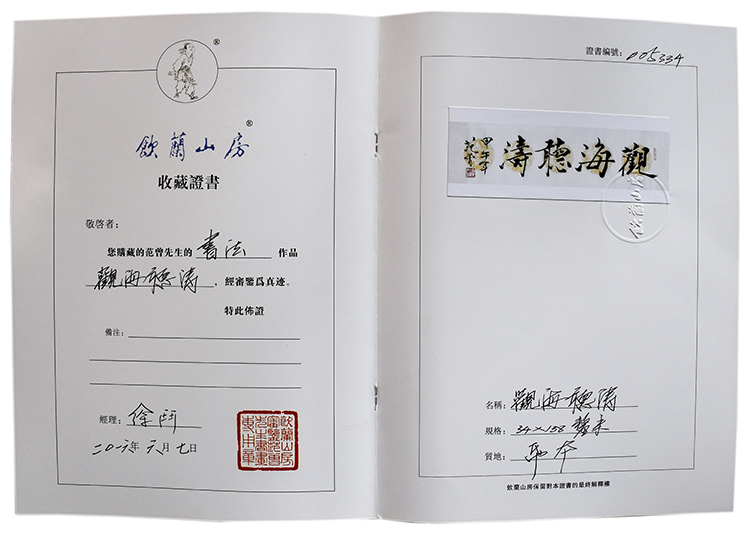 ®
飲蘭山房®
收藏證書
敬啓者：
您購藏的范曾先生的 書法 作品
觀海聽濤 ，經審鑒爲真迹。
特此佈證
備注：
經理：徐鬥
二〇一六年 六月 七日
飲蘭山房
審鑒范曾
先生書畫
專用章
證書編號：005334
觀海聽濤
甲午年
范曾
名稱：觀海聽濤
規格：34×158 釐米
質地：
飲蘭山房保留對本證書的最終解釋權